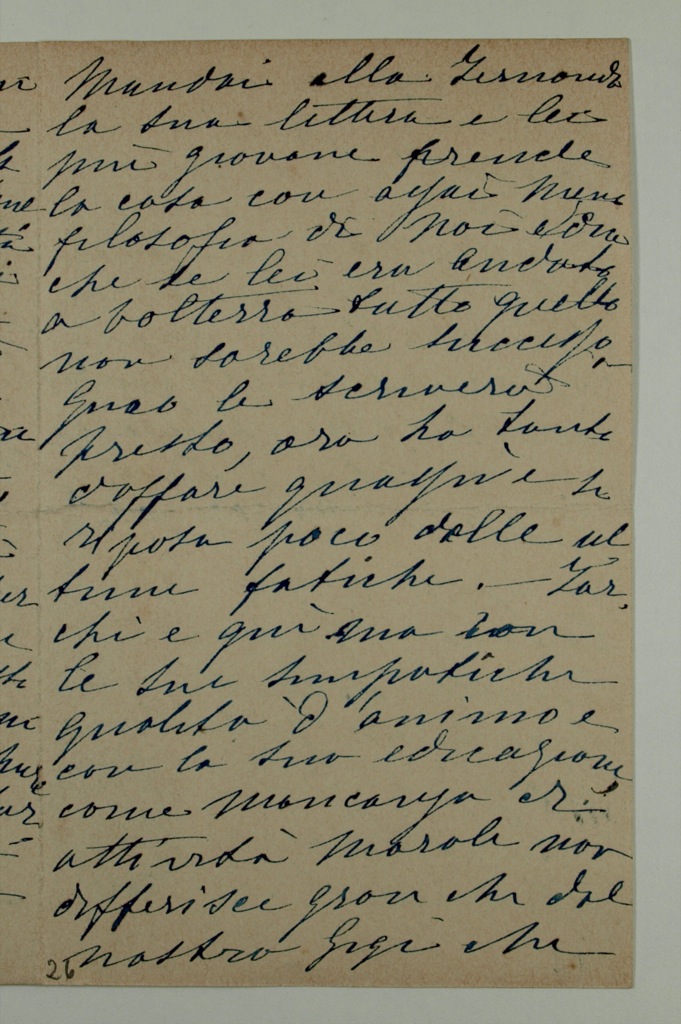 Mandai alla Fernanda
la sua lettera e lei
più giovane prende
la cosa con assai meno
filosofia di noi e dice
che se lei era andata
a Volterra tutto quello
non sarebbe successo,
le scriverà
presto, ora ha tanto
daffare quassù e si
riposa poco dalle ul
time fatiche. — Tar,
chi è quì ma con
le sue simpatiche
qualità d'animo e
con la sua educazione
come mancanza di
attività morale non
differisce gran che dal
nostro Gigi che
26